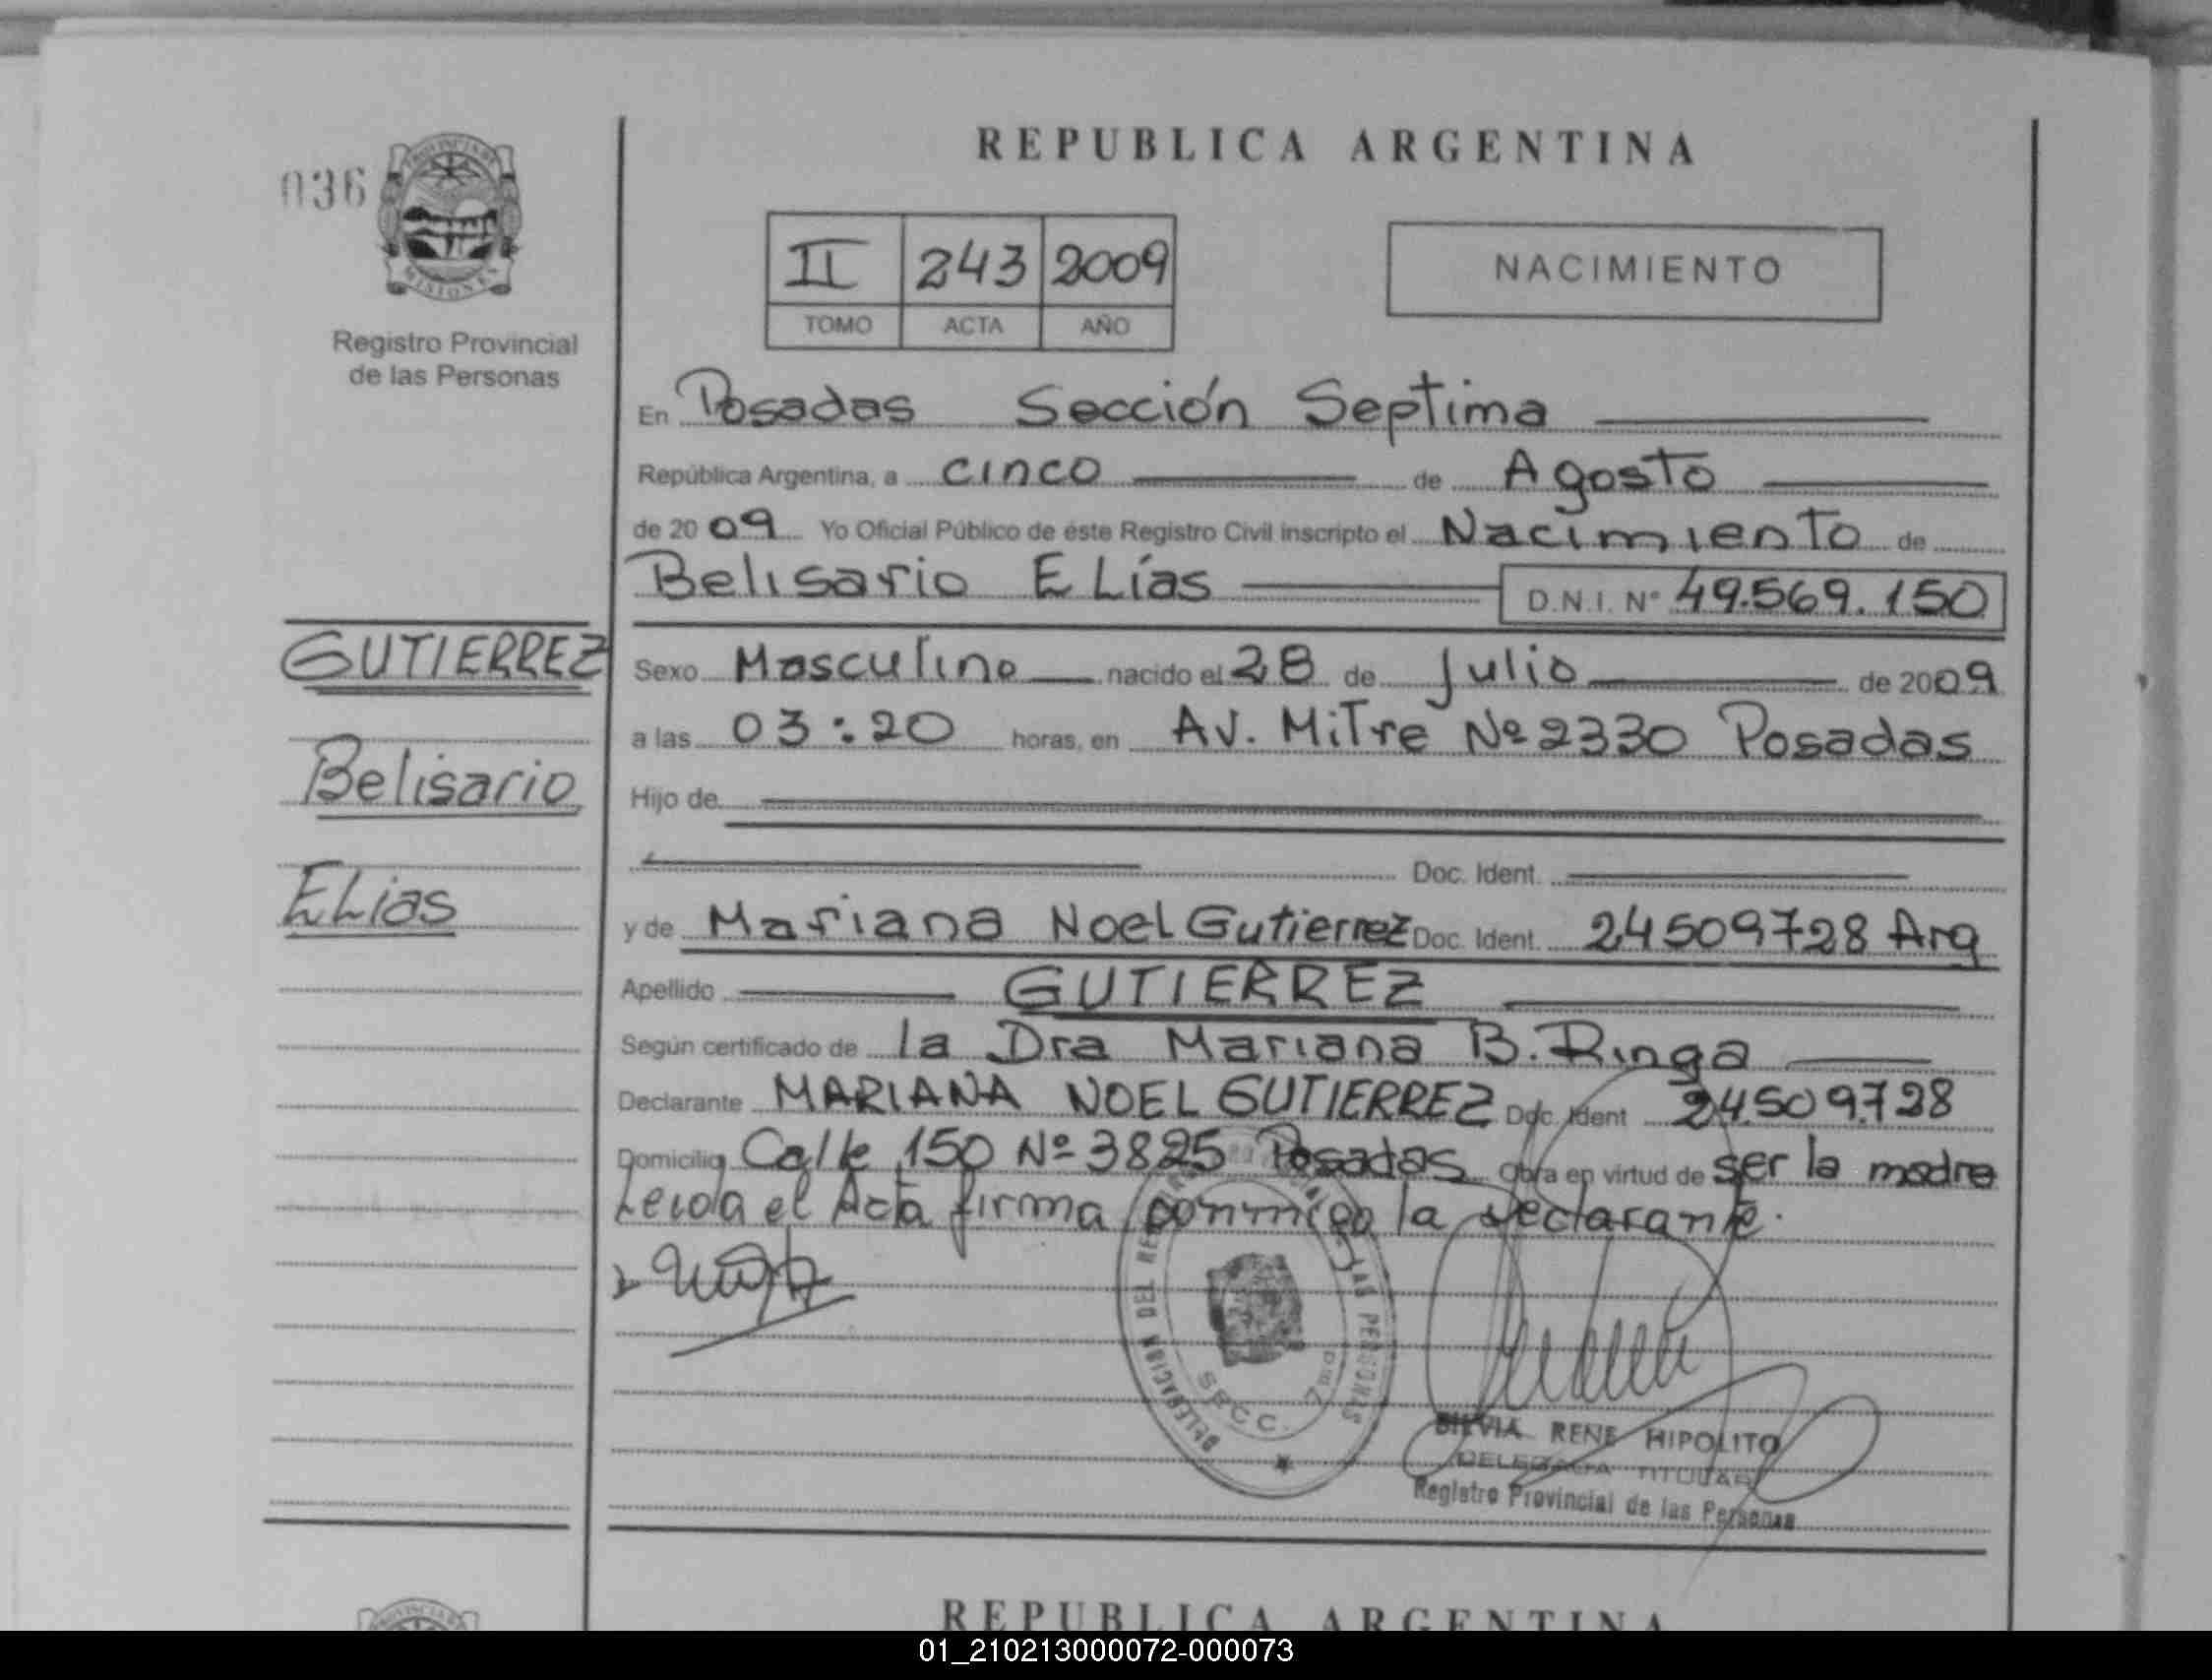 REPUBLICA ARGENTINA
036
PROVINCIA DE
MISIONES
Registro Provincial
de las Personas
II 243 2009
TOMO ACTA AÑO
NACIMIENTO
En Posadas Sección Septima
República Argentina, a cinco de Agosto
de 2009 Yo Oficial Público de éste Registro Civil inscripto el Nacimiento de
Belisario ELías D.N.I. Nº 49.569.150
GUTIERREZ
Belisario
ELias
Sexo Masculino nacido el 28 de Julio de 2009
a las 03:20 horas, en Av. Mitre Nº 2330 Posadas
Hijo de
Doc. Ident.
y de Mariana Noel Gutierrez Doc. Ident. 24509728 Arg
Apellido GUTIERREZ
Según certificado de la Dra Mariana B. Ringa
Declarante MARIANA NOEL GUTIERREZ Doc. Ident 24.509.728
Domicilio Calle 150 Nº 3825 Posadas Obra en virtud de ser la madre
Leida el Acta firma conmigo la declarante.
DELEGACION DEL LAS PERSONAS
SECC. 7ma
SILVIA RENE HIPOLITO
DELEGADA TITULAR
Registro Provincial de las Personas
REPUBLICA ARGENTINA
01_210213000072-000073